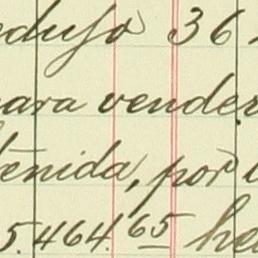 edujo 36
para vender
tenida, por
5.464.65 he